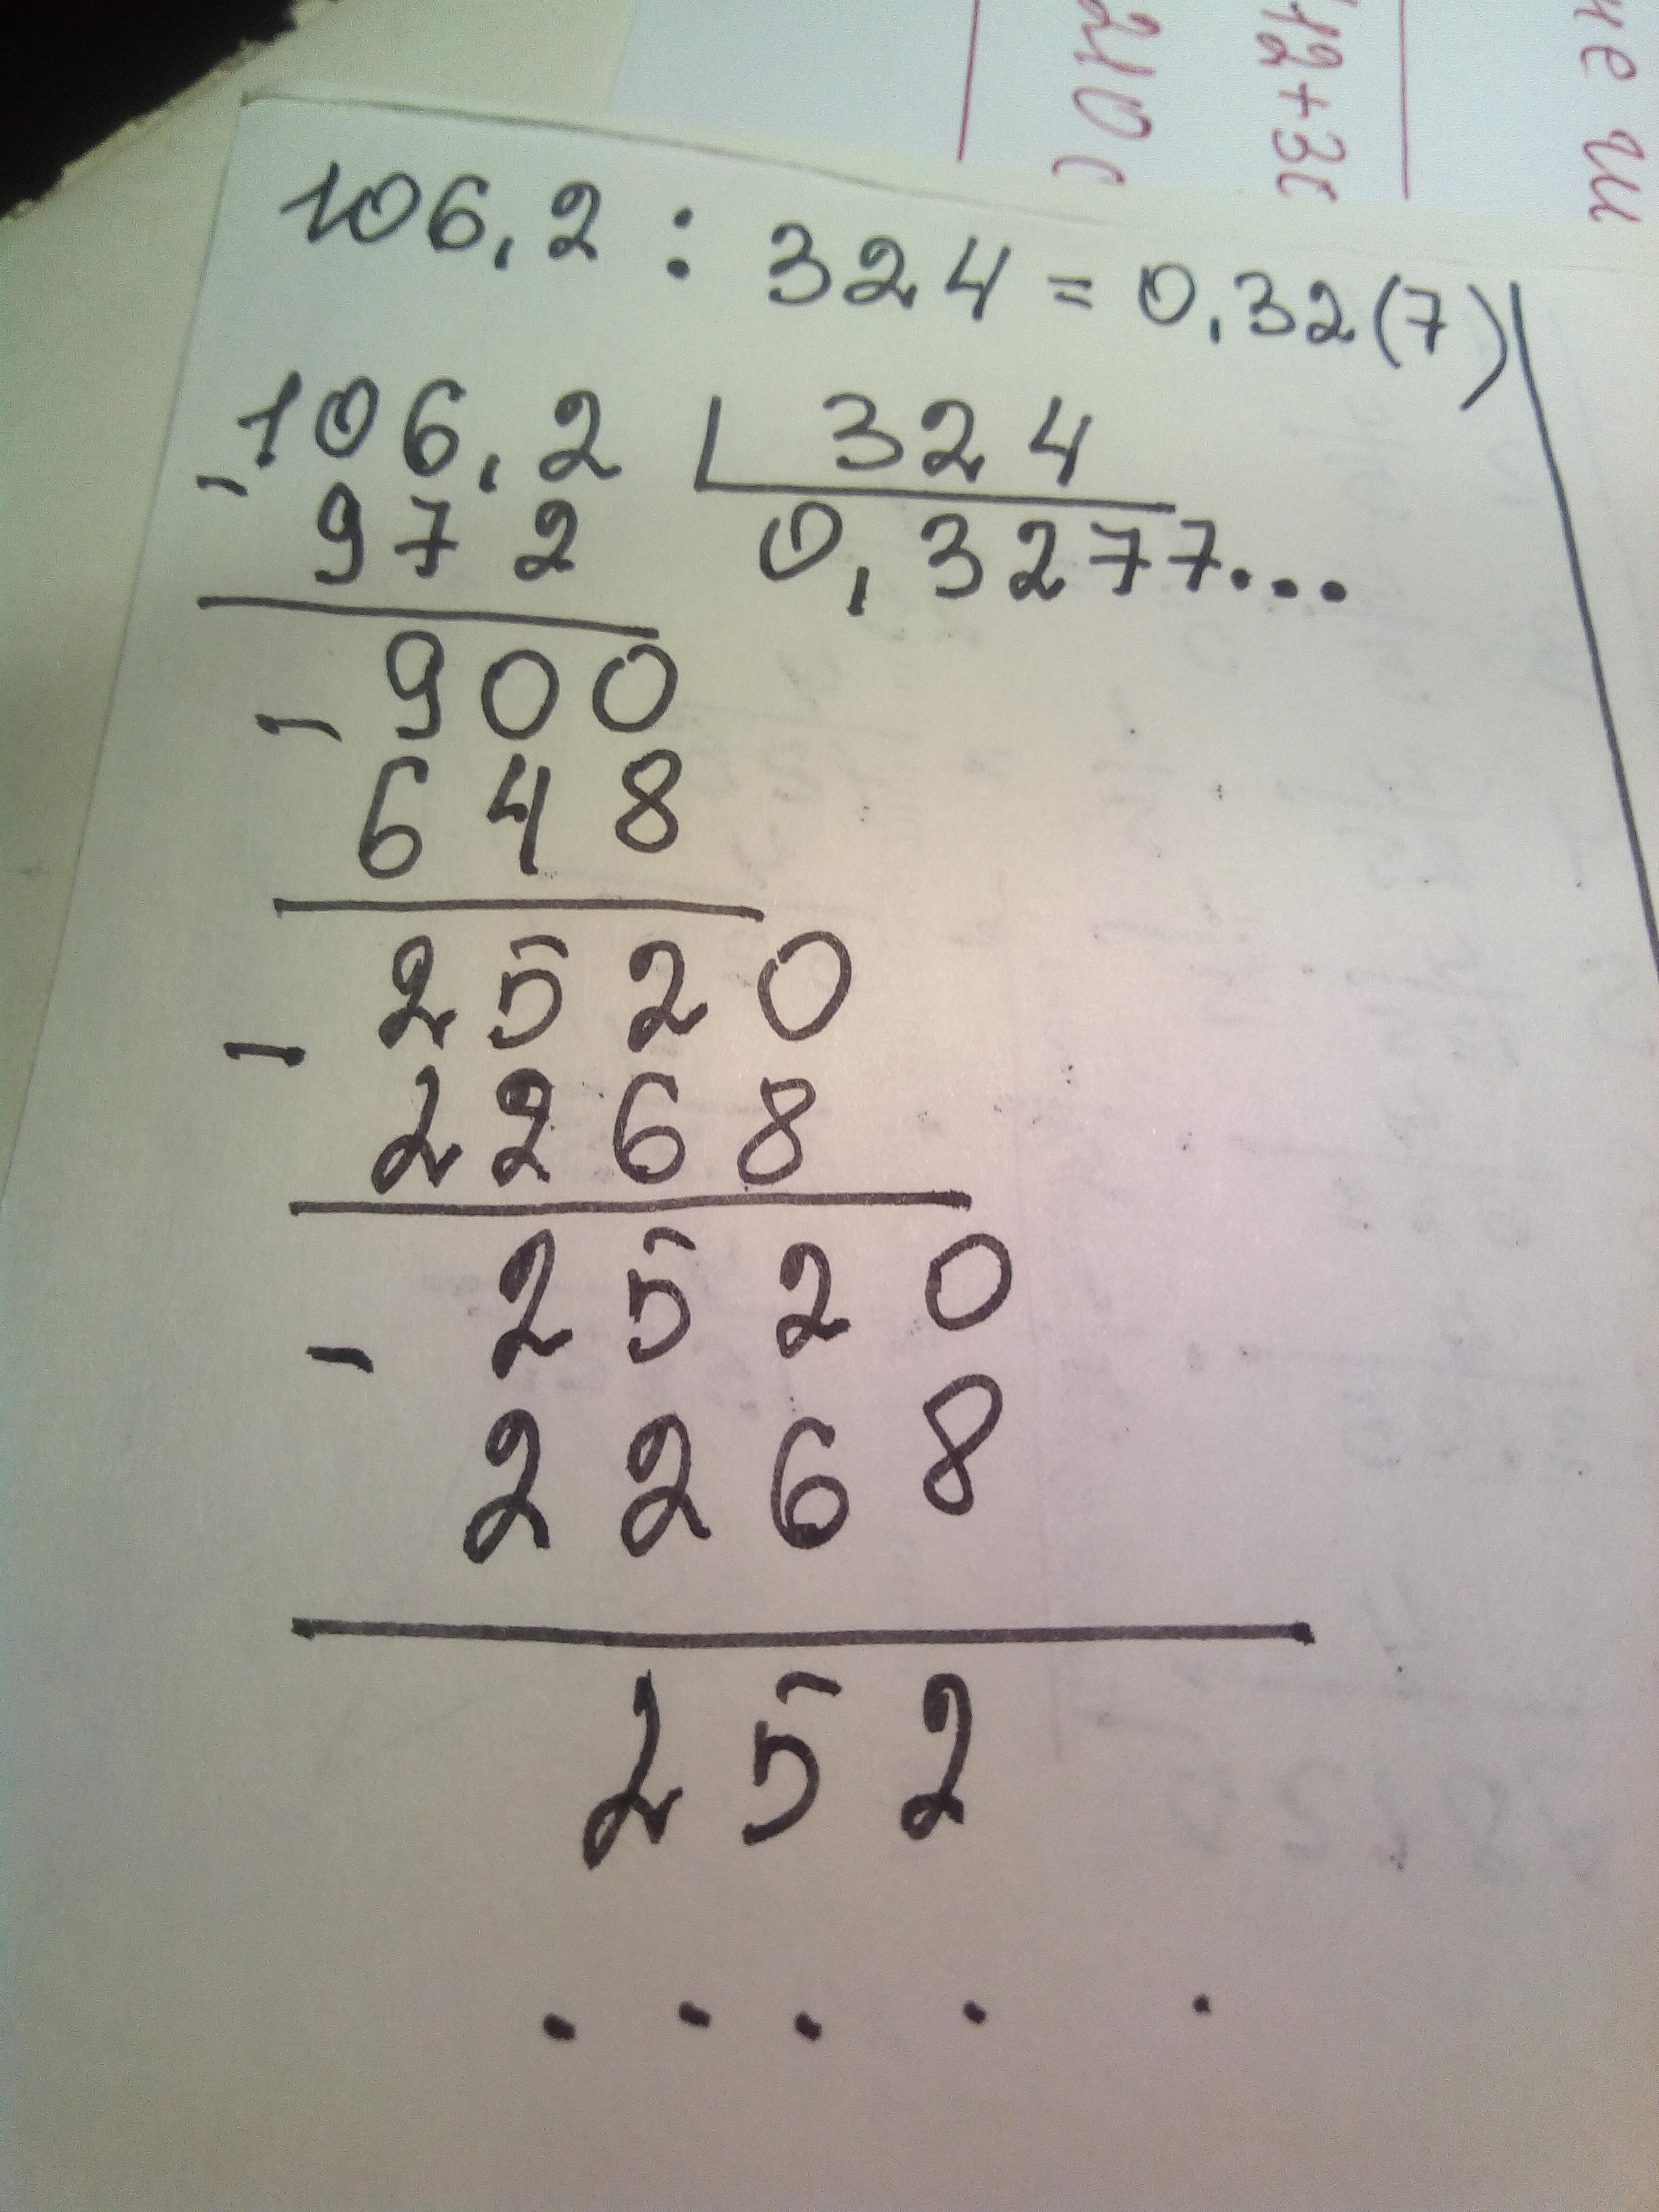 106,2 : 324 = 0,32(7)
106,2 324
- 972 0,3277...
900
- 648
2520
- 2268
2520
- 2268
252
. . . . .
210
12+3
не ш